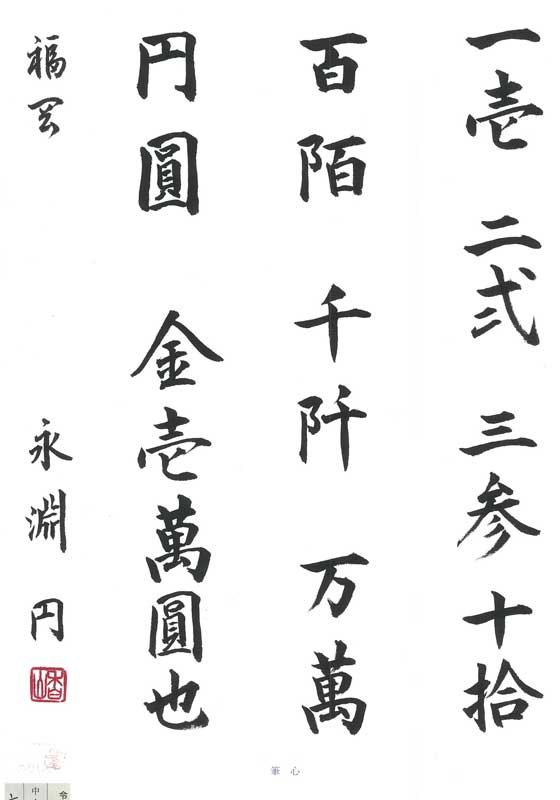 一壱 二弐 三参 十拾
百陌 千阡 万萬
円圓 金壱萬圓也
福岡 永淵 円
筆心